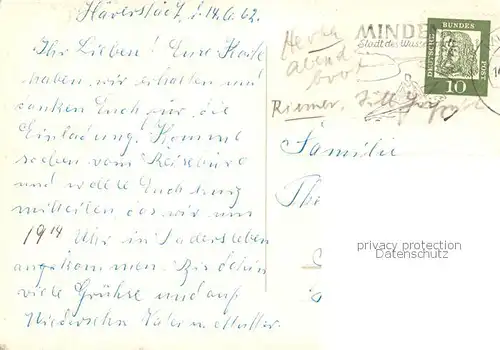 Häverstädt, d. 14.6.62.
Ihr Lieben! Eure Karte
haben wir erhalten und
danken Euch für die
Einladung. Komme
soeben vom Reisebüro
und wollte Euch kurz
mitteilen das wir um
19 14 Uhr in Sadersleben
angekommen. Bis dahin
viele Grühse und auf
Niedersehn Vater u. Mutter.
MINDEN
Stadt des Wasser
DEUTSCHE
BUNDES
POST
10
abend
brot
Riemer,
Familie
privacy protection
Datenschutz